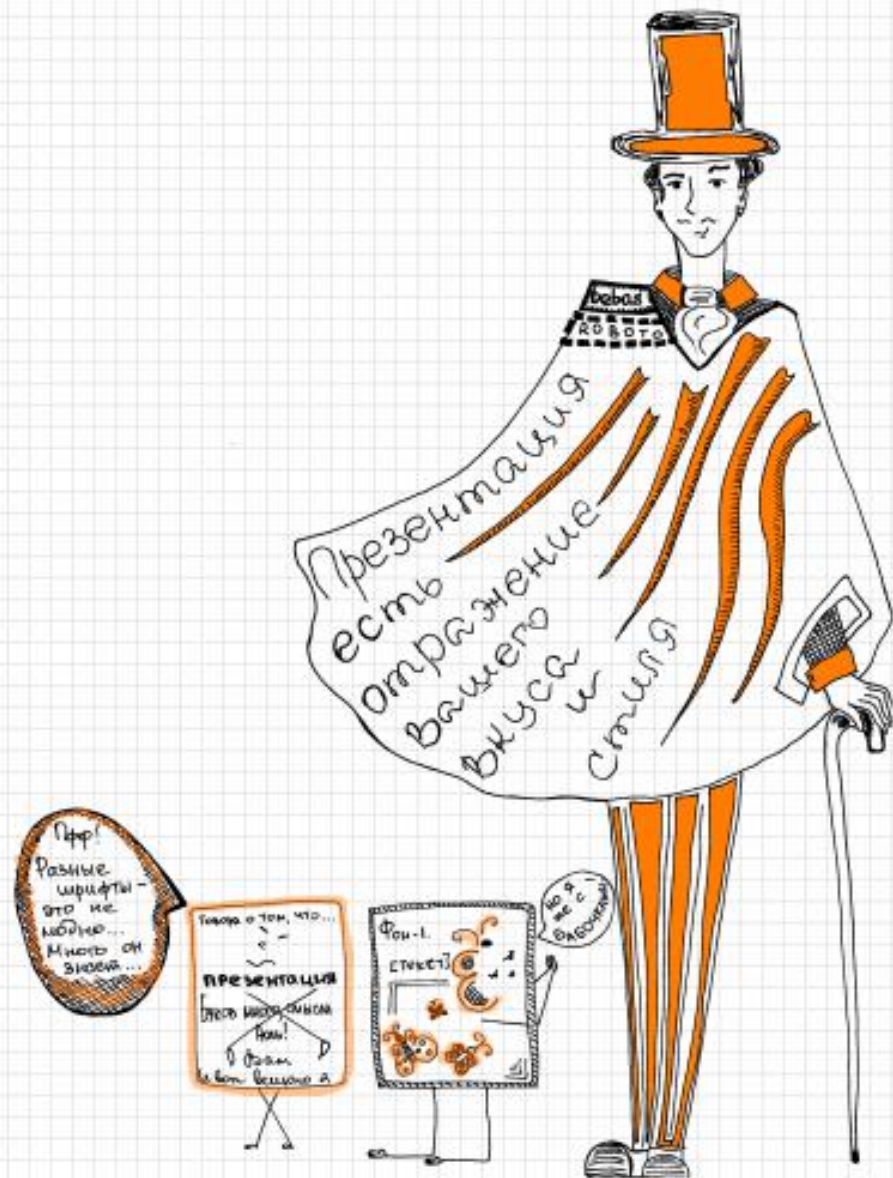 bebas
ROBOTO
Презентация
есть
отражение
вашего
вкуса
и
стиля
Пфф!
Разные
шрифты-
это не
модно...
Много он
знает...
Говоря о том, что...
презентация
Фон-1.
[текст]
но я
же с
бабочками!